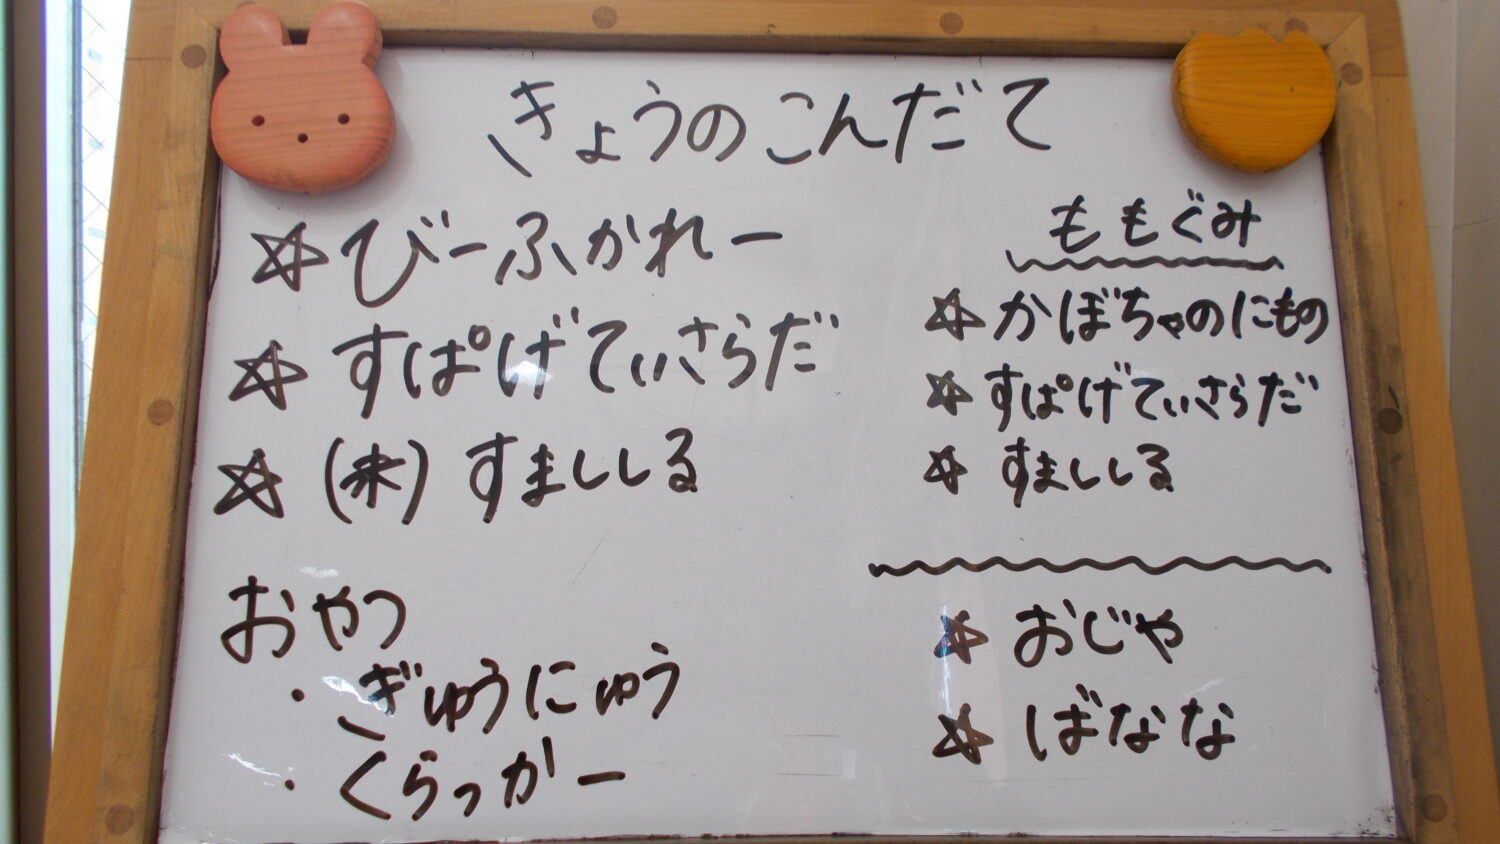 きょうのこんだて
☆びーふかれー
☆すぱげてぃさらだ
☆(米)すまししる
おやつ
・ぎゅうにゅう
・くらっかー
ももぐみ
☆かぼちゃのにもの
☆すぱげてぃさらだ
☆すまししる
☆おじや
☆ばなな